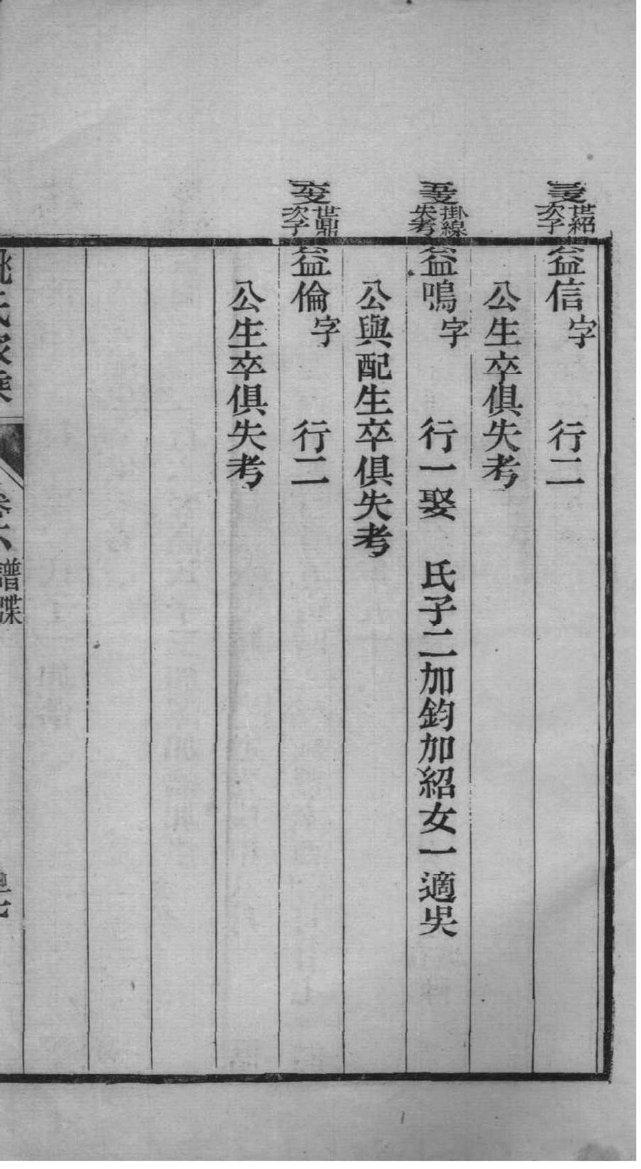 世紹次子
益信字 行二
公生卒俱失考
掛線失考
益鳴字 行一娶 氏子二加鈞加紹女一適吳
公與配生卒俱失考
世鼎次子
益倫字 行二
公生卒俱失考
姚氏家乘
卷六 譜牒